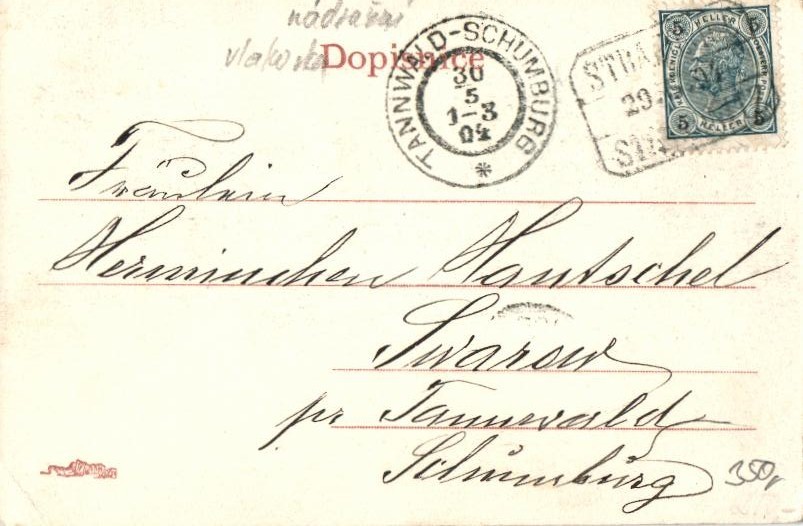 nádražní
vlakovka
Dopisnice
TANNWALD-SCHUMBURG
30
5
1-3
04
*
5 HELLER 5
5 HELLER 5
STRA
29
Fräulein
Herminchen Hantschel
Swarow
pr Tannwald
Schumburg
350,